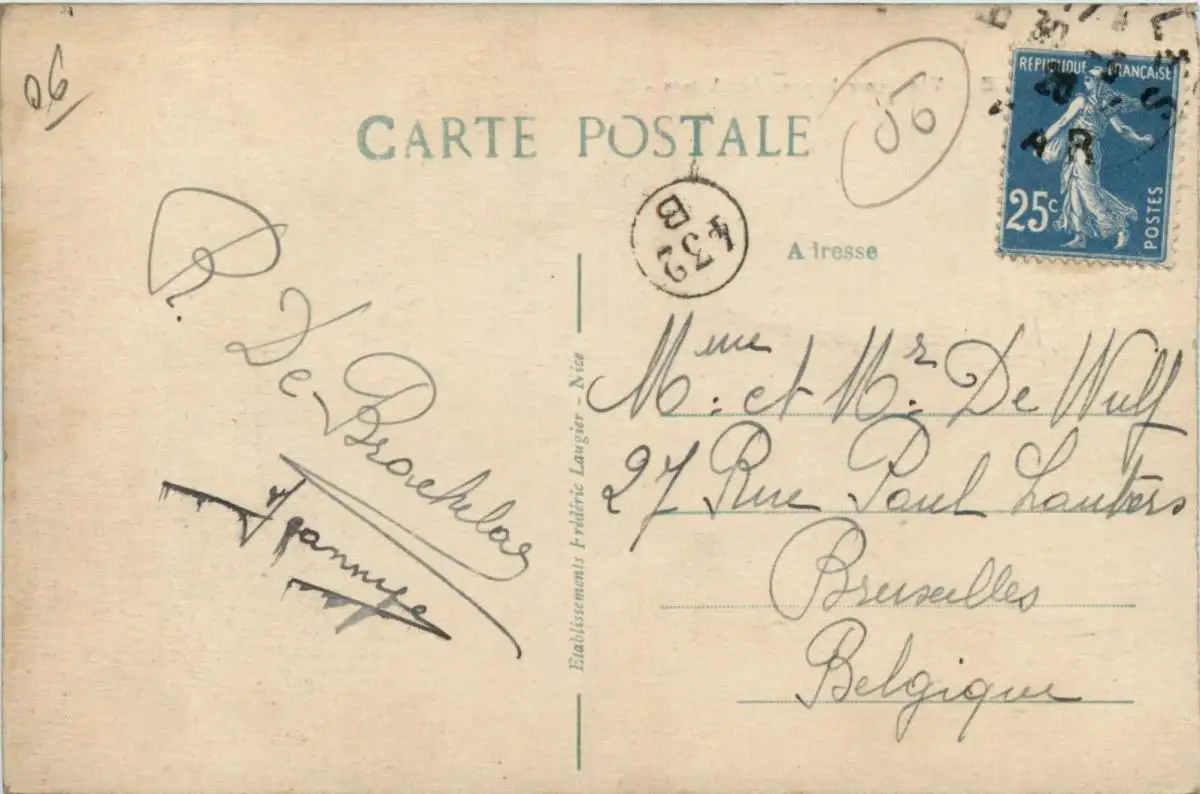 06
CARTE POSTALE
06
REPUBLIQUE FRANÇAISE
25c
POSTES
A R
B
4
3
2
Adresse
De
Jeannine
Etablissements Frédéric Laugier - Nice
Mme et Mr De Wulf
27 Rue Paul Lauters
Bruxelles
Belgique